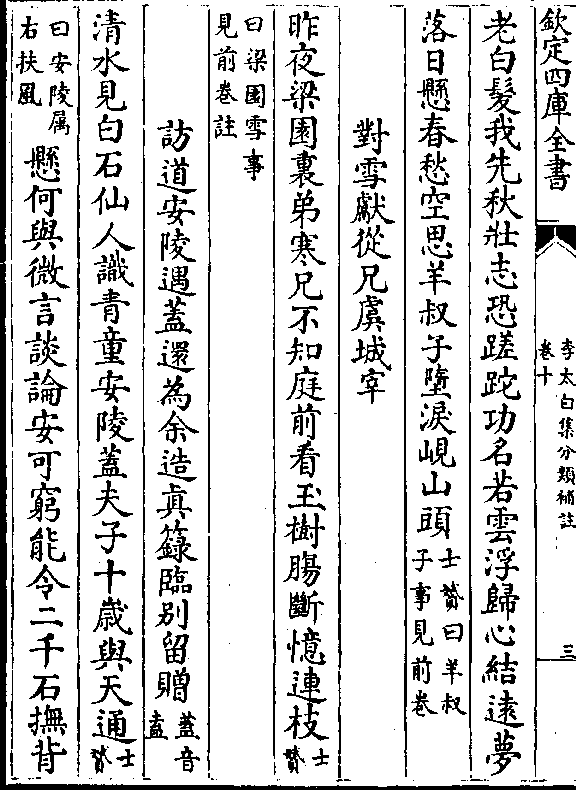 欽定四庫全書
李太白集分類補註
卷十
三
老白髮我先秋壯志恐蹉跎功名若雲浮歸心結遠夢
落日懸春愁空思羊叔子墮淚峴山頭士贇曰羊叔
子事見前卷
對雪獻從兄虞城宰
昨夜梁園裏弟寒兄不知庭前看玉樹腸斷憶連枝士贇
曰梁園雪事
見前卷註
訪道安陵遇蓋還為余造真籙臨别留贈蓋音
盍
清水見白石仙人識青童安陵蓋夫子十歳與天通士贇
曰安陵属
右扶風
懸何與微言談論安可窮能令二千石撫背